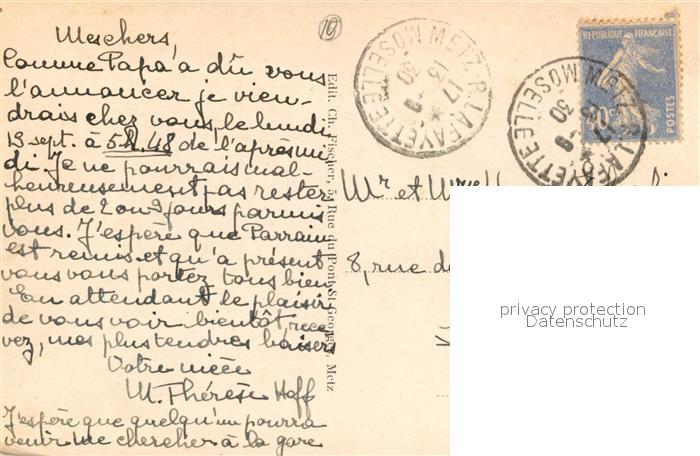 Mes chers,
Comme Papa a dû vous
l'annoncer je vien-
drais chez vous, le lundi
15 sept. à 5 h. 48 de l'après mi
di. Je ne pourrais mal-
heureusement pas rester
plus de 2 ou 3 jours parmis
vous. J'espère que Parrain
est remis et qu'à présent
vous vous portez tous bien
En attendant le plaisir
de vous voir bientôt, rece
vez, mes plus tendres baisers
Votre nièce
M. Thérèse Hoff
J'espère que quelqu'un pourra
venir me chercher à la gare
10
Edit. Ch. Fischer, 54 Rue du Pont-St-Georges, Metz
METZ-R. LAFAYETTE
MOSELLE
REPUBLIQUE FRANÇAISE
POSTES
METZ-R. LAFAYETTE
MOSELLE
Mr et
8, rue de
privacy protection
Datenschutz